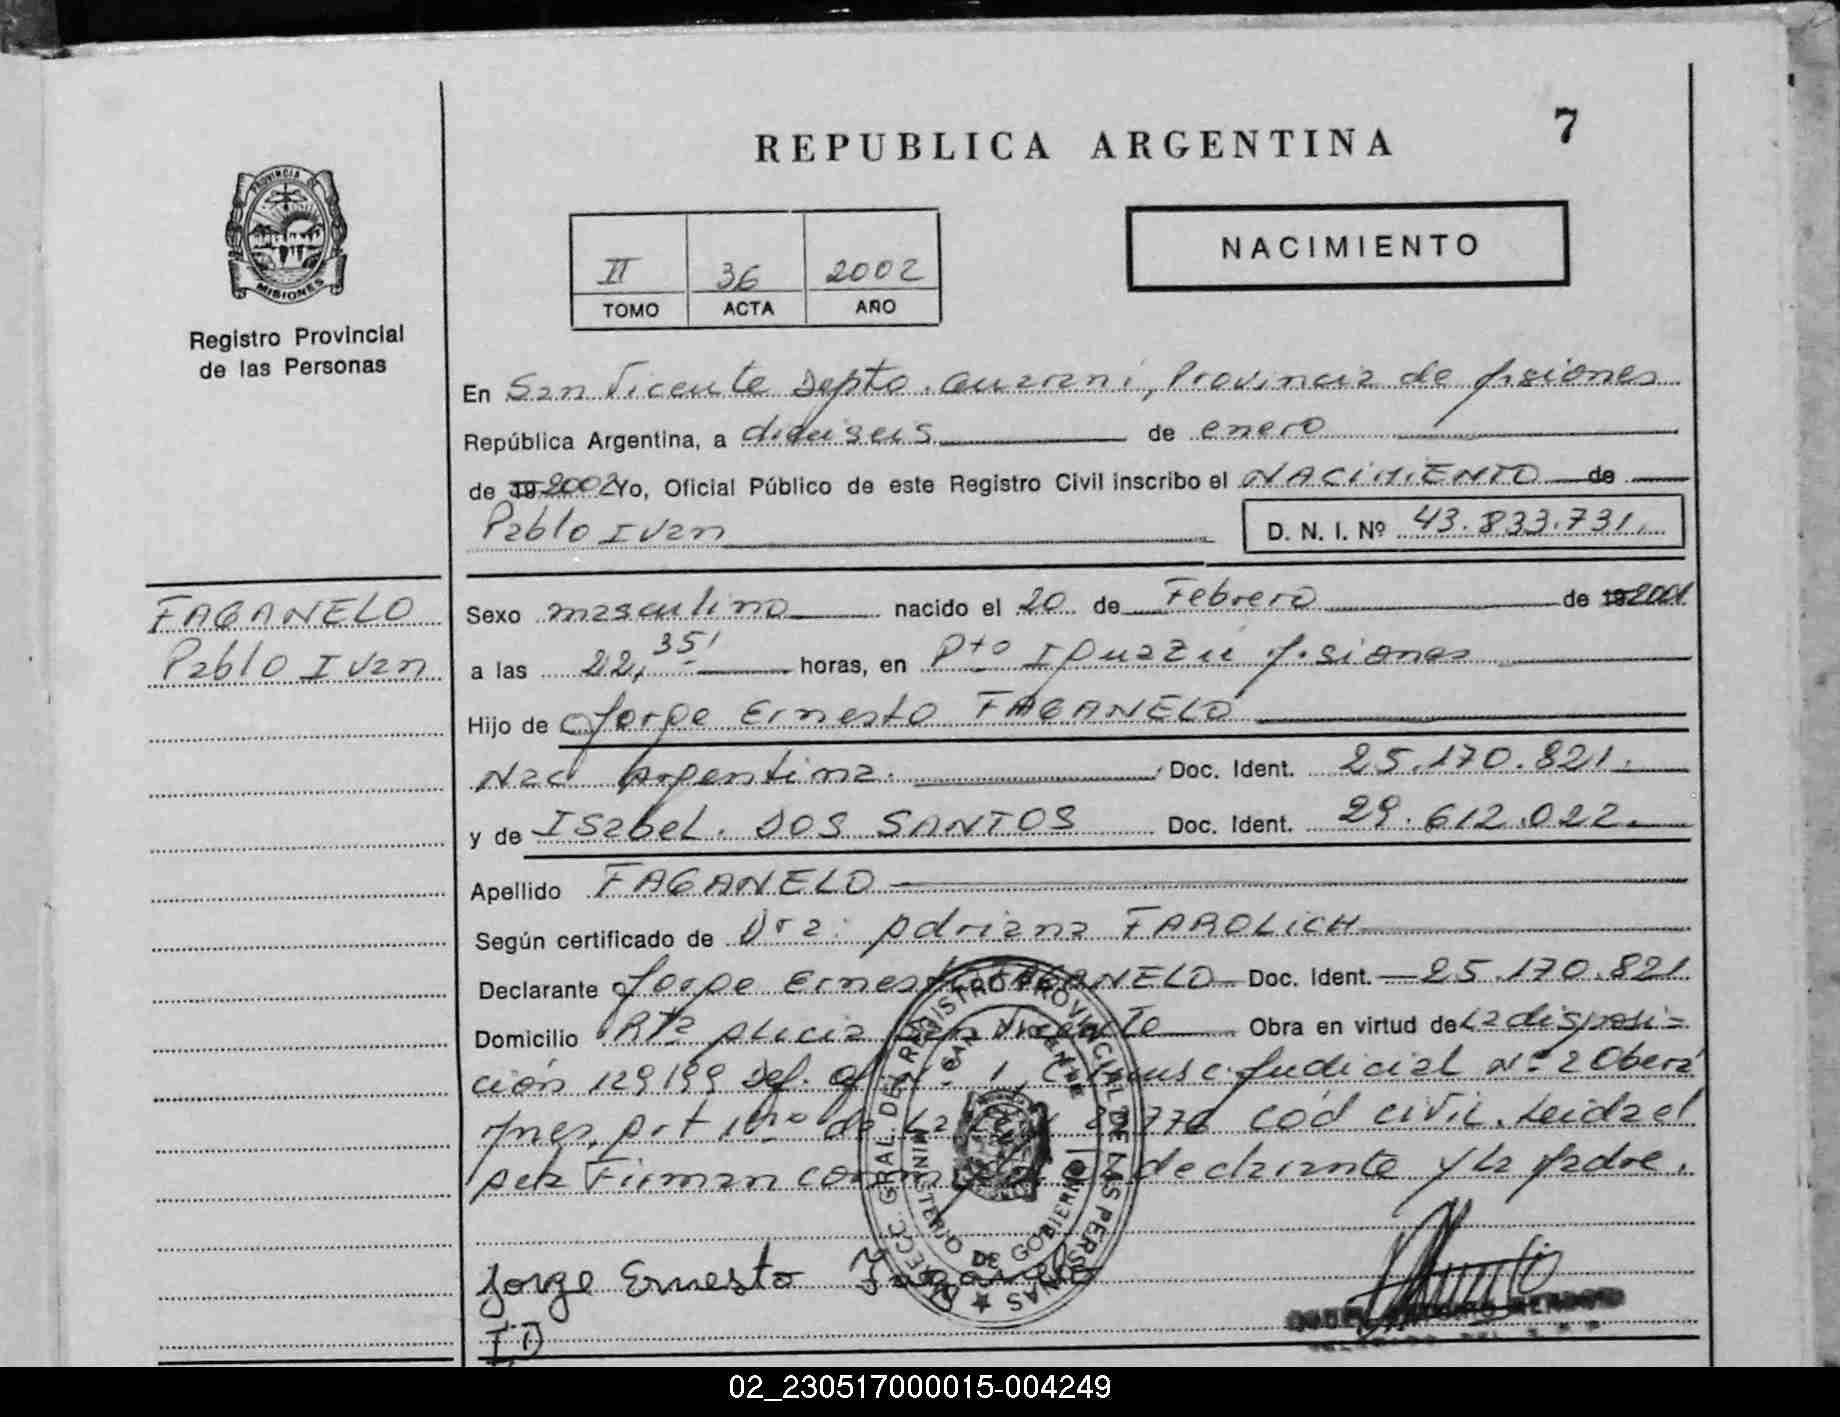 REPUBLICA ARGENTINA
7
PROVINCIA DE
MISIONES
Registro Provincial
de las Personas
NACIMIENTO
II 36 2002
TOMO ACTA AÑO
En San Vicente Depto. Guaraní, Provincia de Misiones
República Argentina, a dieciseis de enero
de 19 2002 Yo, Oficial Público de este Registro Civil inscribo el NACIMIENTO de
Pablo Ivan D. N. I. Nº 43.833.731.
FAGANELO
Pablo Ivan
Sexo masculino nacido el 20 de Febrero de 19 2001
a las 22,35' horas, en Pto Iguazú Misiones
Hijo de Jorge Ernesto FAGANELO
Nac Argentina. Doc. Ident. 25.170.821.
y de ISabel. DOS SANTOS Doc. Ident. 29.612.022.
Apellido FAGANELO
Según certificado de Dra: Adriana FAROLICH
Declarante Jorge Ernesto FAGANELO Doc. Ident. 25.170.821
Domicilio Rta Alicia San Vicente Obra en virtud de La disposi=
ción 129199 Def. Of Nº 1, Circunsc. Judicial Nº 2 Oberá
Mnes. Art de La Ley cód civil. Leida el
acta Firman el declarante y la Madre.
DIRECC. GRAL. DEL REGISTRO PROVINCIAL DE LAS PERSONAS
MINISTERIO DE GOBIERNO
SAN VICENTE
Jorge Ernesto Faganelo
I D
02_230517000015-004249